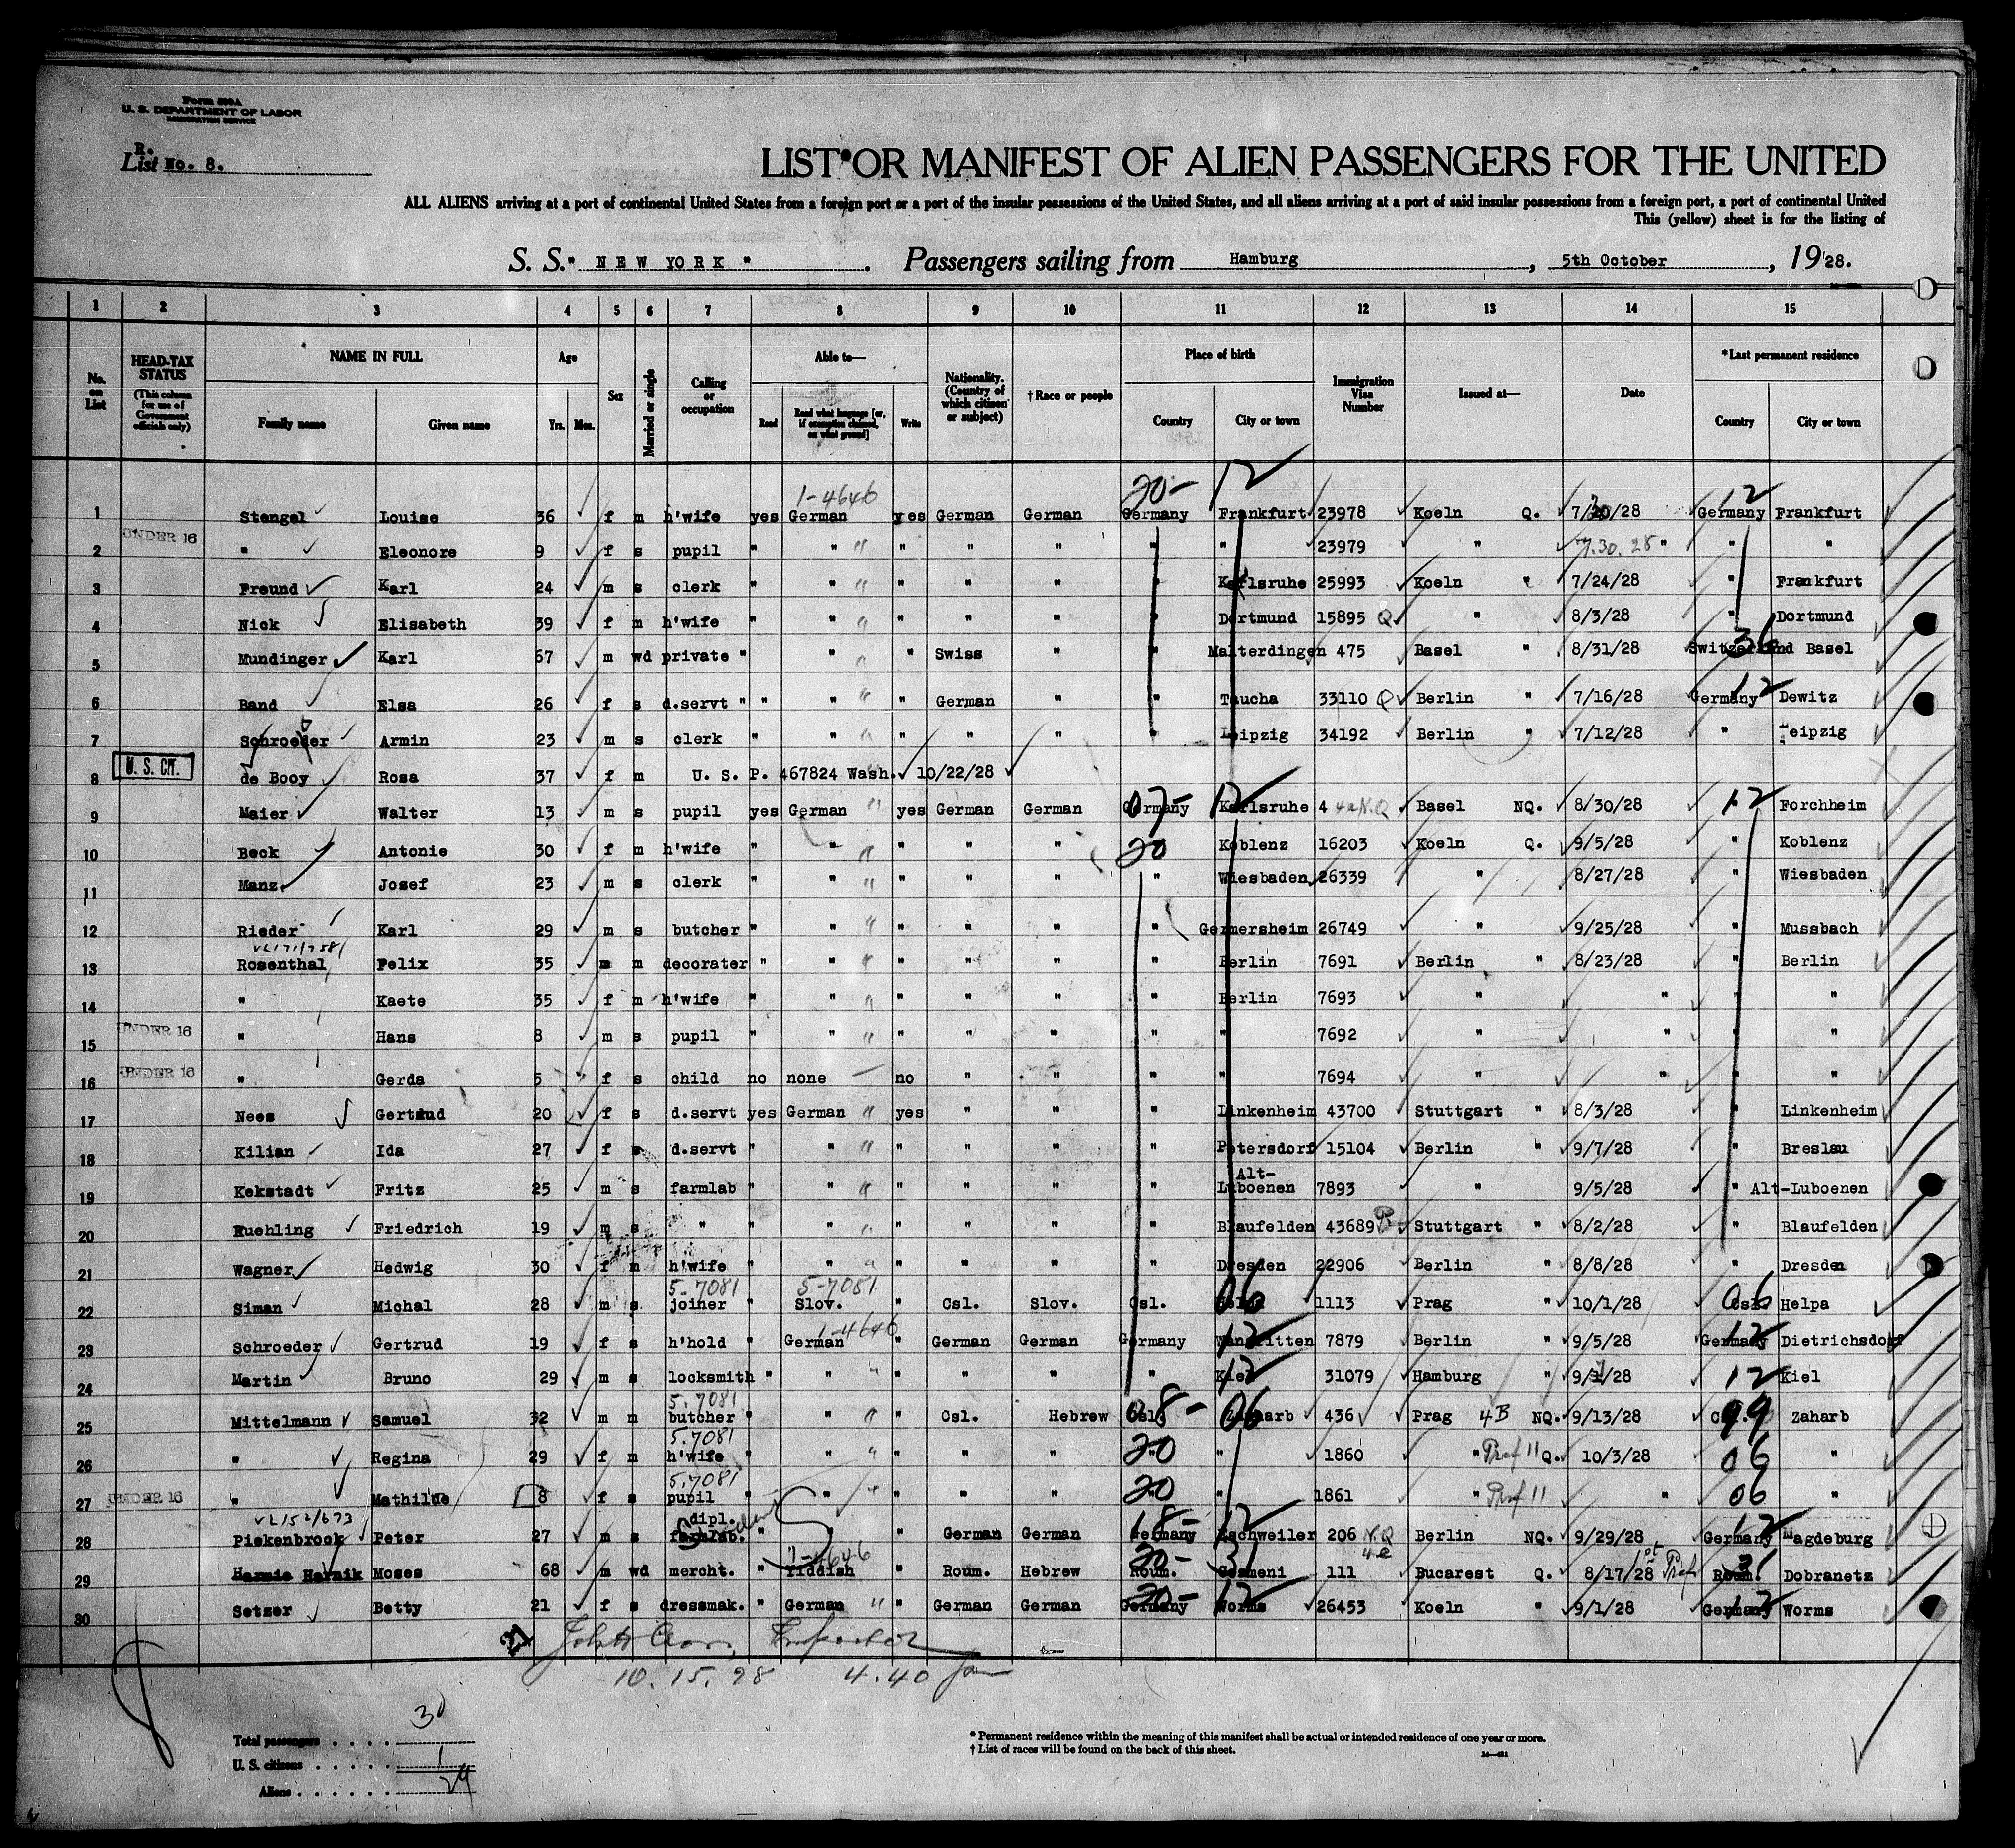 Form 500A
U. S. DEPARTMENT OF LABOR
IMMIGRATION SERVICE
R.
List No. 8.
LIST OR MANIFEST OF ALIEN PASSENGERS FOR THE UNITED
ALL ALIENS arriving at a port of continental United States from a foreign port or a port of the insular possessions of the United States, and all aliens arriving at a port of said insular possessions from a foreign port, a port of continental United
This (yellow) sheet is for the listing of
S. S. " NEW YORK " Passengers sailing from Hamburg, 5th October, 1928.
1 2 3 4 5 6 7 8 9 10 11 12 13 14 15
No. on List HEAD-TAX STATUS (This column for use of Government officials only) NAME IN FULL Family name Given name Age Yrs. Mos. Sex Married or single Calling or occupation Able to— Read Read what language [or, if exemption claimed, on what ground] Write Nationality. (Country of which citizen or subject) †Race or people Place of birth Country City or town Immigration Visa Number Issued at— Date *Last permanent residence Country City or town
1-4646 20- 12 12
1 Stengel Louise 36 f m h'wife yes German yes German German Germany Frankfurt 23978 Koeln Q. 7/30/28 Germany Frankfurt
UNDER 16
2 " Eleonore 9 f s pupil " " " " " " " 23979 " 7.30.28 " " "
3 Freund Karl 24 m s clerk " " " " " " Karlsruhe 25993 Koeln " 7/24/28 " Frankfurt
4 Nick Elisabeth 39 f m h'wife " " " " " " Dortmund 15895 Q " 8/3/28 " Dortmund
5 Mundinger Karl 67 m wd private " " " Swiss " " Malterdingen 475 Basel " 8/31/28 Switzerland 36 Basel
6 Band Elsa 26 f s d.servt " " " " German " " Taucha 33110 Q Berlin " 7/16/28 Germany 12 Dewitz
7 Schroeder Armin 23 m s clerk " " " " " " Leipzig 34192 Berlin " 7/12/28 " Leipzig
U. S. CIT.
8 de Booy Rosa 37 f m U. S. P. 467824 Wash. 10/22/28
9 Maier Walter 13 m s pupil yes German yes German German Germany 07- 12 Karlsruhe 4 4a N.Q Basel NQ. 8/30/28 12 Forchheim
10 Beck Antonie 30 f m h'wife " " " " " 20 Koblenz 16203 Koeln Q. 9/5/28 " Koblenz
11 Manz Josef 23 m s clerk " " " " " " Wiesbaden 26339 " 8/27/28 " Wiesbaden
12 Rieder Karl 29 m s butcher " " " " " " Germersheim 26749 " 9/25/28 " Mussbach
13 Rosenthal Felix 35 m m decorater " " " " " " Berlin 7691 Berlin " 8/23/28 " Berlin
14 " Kaete 35 f m h'wife " " " " " " Berlin 7693 " " " "
UNDER 16
15 " Hans 8 m s pupil " " " " " " " 7692 " " " "
UNDER 16
16 " Gerda 5 f s child no none no " " " " 7694 " " " "
17 Nees Gertrud 20 f s d.servt yes German yes " " " Linkenheim 43700 Stuttgart " 8/3/28 " Linkenheim
18 Kilian Ida 27 f s d.servt " " " " " " Petersdorf 15104 Berlin " 9/7/28 " Breslau
19 Kekstadt Fritz 25 m s farmlab " " " " " " Alt-Luboenen 7893 " 9/5/28 " Alt-Luboenen
20 Kuehling Friedrich 19 m s " " " " " " " Blaufelden 43689 Stuttgart " 8/2/28 " Blaufelden
21 Wagner Hedwig 30 f m h'wife " " " " " " Dresden 22906 Berlin " 8/8/28 " Dresden
5-7081 5-7081
22 Siman Michal 28 m s joiner " Slov. " Csl. Slov. Csl. 06 1113 Prag " 10/1/28 Csl. 06 Helpa
1-4646
23 Schroeder Gertrud 19 f s h'hold " German " German German Germany 12 7879 Berlin " 9/5/28 Germany 12 Dietrichsdorf
24 Martin Bruno 29 m s locksmith " " " " " " Kiel 12 31079 Hamburg " 9/1/28 12 Kiel
5.7081
25 Mittelmann Samuel 32 m m butcher " " " Csl. Hebrew Csl. 08- 06 Zaharb 436 Prag 4B NQ. 9/13/28 Csl. 99 Zaharb
5.7081
26 " Regina 29 f m h'wife " " " " " 20 " 1860 " Pref 11 Q. 10/3/28 06 "
5.7081
UNDER 16
27 " Mathilde 8 f s pupil " " " " " 20 " 1861 " Pref 11 " 06 "
28 Piekenbrock Peter 27 m s dipl. farmlab. Student " " " German German Germany 18- 12 Eschweiler 206 N.Q 4e Berlin NQ. 9/29/28 Germany 12 Magdeburg
1-4646
29 Harnik Moses 68 m wd mercht. " Yiddish " Roum. Hebrew Roum. 20- 31 111 Bucarest Q. 8/17/28 1st Pref Roum. 31 Dobranetz
30 Setzer Betty 21 f s dressmak. " German " German German Germany 20- 12 Worms 26453 Koeln " 9/1/28 Germany 12 Worms
Inspector
10.15.28 4.40 pm
Total passengers 30
U. S. citizens 1
Aliens 29
* Permanent residence within the meaning of this manifest shall be actual or intended residence of one year or more.
† List of races will be found on the back of this sheet.